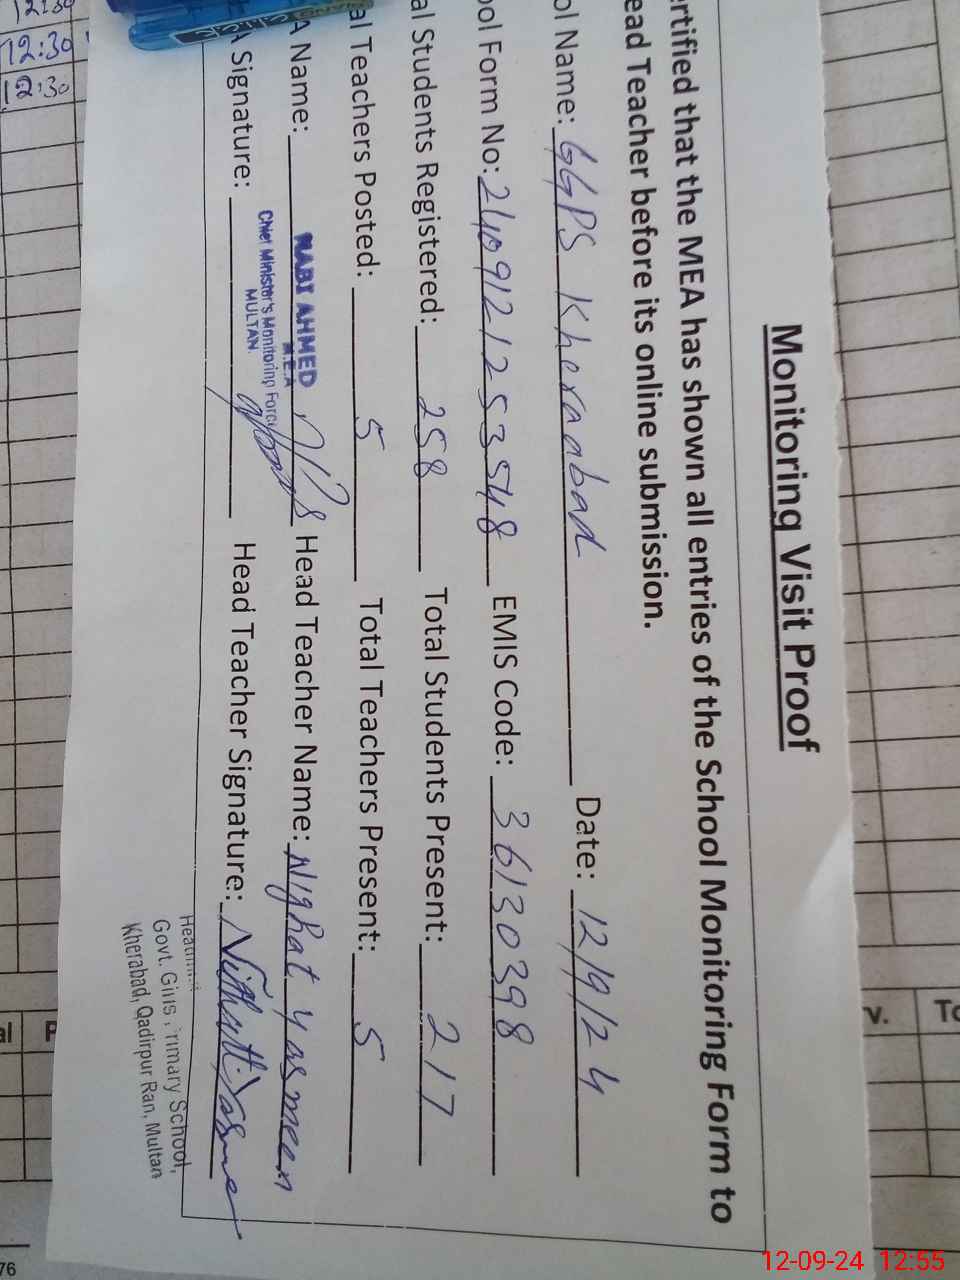 Monitoring Visit Proof
ertified that the MEA has shown all entries of the School Monitoring Form to
ead Teacher before its online submission.
ol Name: GGPS Kheraabad Date: 12/9/24
ool Form No: 2409121253548 EMIS Code: 36130398
al Students Registered: 258 Total Students Present: 217
al Teachers Posted: 5 Total Teachers Present: 5
A Name: NABI AHMED Head Teacher Name: Nighat Yasmeen
M.E.A
Chief Minister's Monitoring Force
MULTAN.
A Signature: Head Teacher Signature:
Govt. Girls Primary School,
Kherabad, Qadirpur Ran, Multan
12:30
12:30
12:30
v.
To
76
12-09-24 12:55